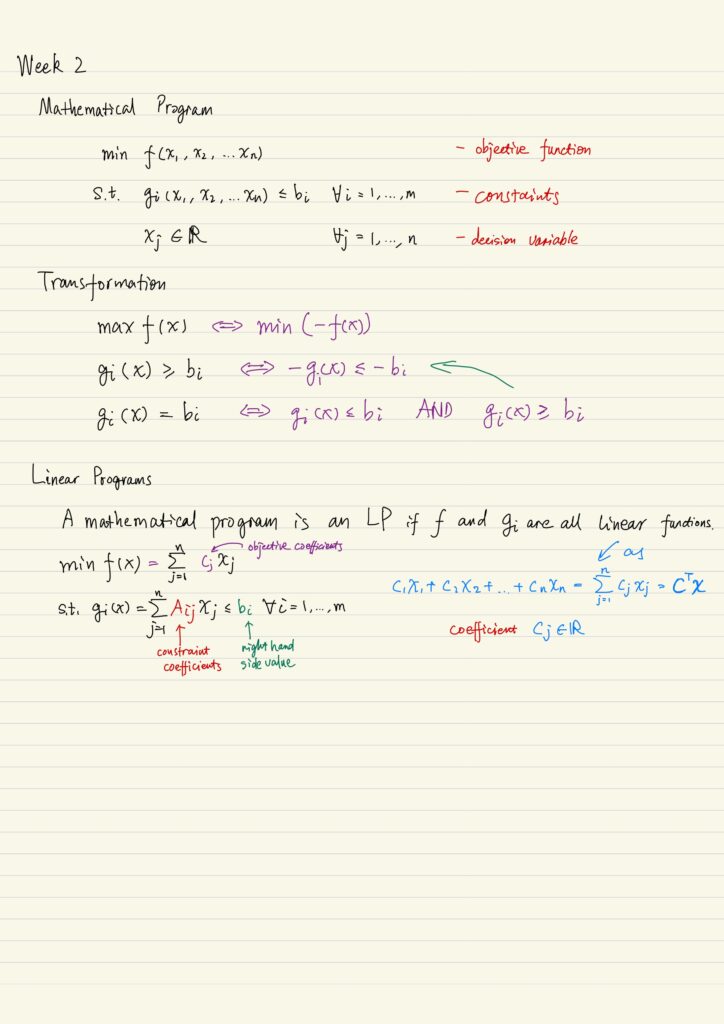 Week 2
Mathematical Program
min f(x₁, x₂, ... xₙ) - objective function
s.t. gᵢ(x₁, x₂, ... xₙ) ≤ bᵢ ∀i = 1, ..., m - constaints
xⱼ ∈ ℝ ∀j = 1, ..., n - decision variable
Transformation
max f(x) ⇔ min (-f(x))
gᵢ(x) ≥ bᵢ ⇔ -gᵢ(x) ≤ -bᵢ
gᵢ(x) = bᵢ ⇔ gᵢ(x) ≤ bᵢ AND gᵢ(x) ≥ bᵢ
Linear Programs
A mathematical program is an LP if f and gᵢ are all linear functions.
objective coefficients
min f(x) = ∑ⱼ₌₁ⁿ cⱼ xⱼ
s.t. gᵢ(x) = ∑ⱼ₌₁ⁿ Aᵢⱼ xⱼ ≤ bᵢ ∀i = 1, ..., m
constraint coefficients
right hand side value
as
c₁x₁ + c₂x₂ + ... + cₙxₙ = ∑ⱼ₌₁ⁿ cⱼ xⱼ = cᵀx
coefficient cⱼ ∈ ℝ